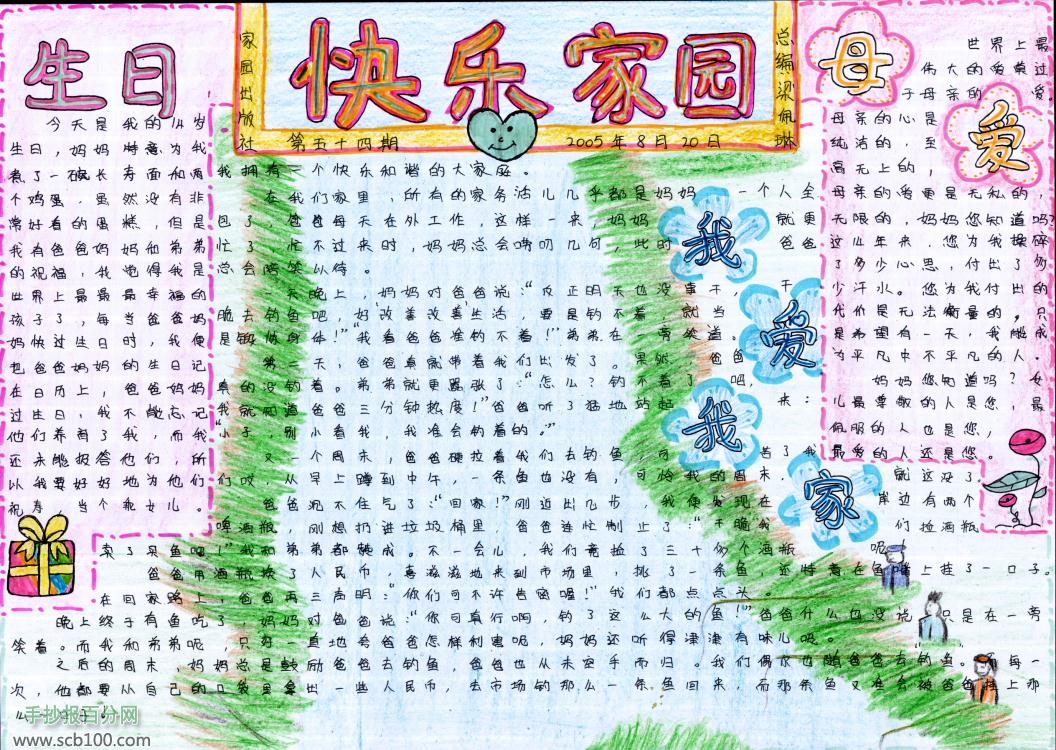 快乐家园
家园出版社
总编梁佩琳
第五十四期
2005年8月20日
生日
今天是我的14岁
生日，妈妈特意为我
煮了一碗长寿面和两
个鸡蛋，虽然没有非
常好看的蛋糕，但是
我有爸爸妈妈和弟弟
的祝福，我觉得我是
世界上最最最幸福的
孩子了，每当爸爸妈
妈快过生日时，我便
把爸爸妈妈的生日记
在日历上，爸爸妈妈
过生日，我不能忘记
他们养育了我，而我
还未能报答他们，所
以我要好好地为他们
祝寿，当个乖女儿。
我爱我家
我拥有一个快乐和谐的大家庭。
在我们家里，所有的家务活儿几乎都是妈妈一个人全
包了，爸爸每天在外工作，这样一来，妈妈就更
忙了，忙不过来时，妈妈总会唠叨几句，此时爸爸
总会陪笑以待。
天晚上，妈妈对爸爸说：“反正明天也没事干，
脆去钓鱼吧，好改善改善生活，要是钓不着，就当
是锻炼身体！”“我看爸爸准钓不着！”弟弟在旁笑道。
第二天，爸爸真就带着我们出发了。果然，爸爸
真的没钓着。弟弟就更嚣张了：“怎么？钓不着了吧，
我就知道爸爸三分钟热度！”爸爸听了猛地站起来：
“小子，别小看我，我准会钓着的。”
又一个周末，爸爸硬拉着我们去钓鱼，可苦了我
们哎，从早上蹲到中午，条鱼也没有，可怜我的周末，就这没了。
爸爸沉不住气了：“回家！”刚迈出几步，我便发现在岸边有两个
啤酒瓶，刚想扔进垃圾桶里，爸爸连忙制止了：“不脆我们捡酒瓶
卖了买鱼吧！”我和弟弟都赞成。不一会儿，我们竟捡了三十多个酒瓶呢。
爸爸用酒瓶换了人民币，喜滋滋地来到市场里，挑了一条鱼，还特意在鱼嘴上挂了一口子。
在回家路上，爸爸再三声明：“你们可不许告密喔！”我们都点点头。
晚上终于有鱼吃了，妈妈对爸爸说：“你可真行啊，钓了这么大的鱼！”爸爸什么也没说，只是在一旁
笑着。而我和弟弟呢，只好一直地夸爸爸怎样利害呢，妈妈还听得津津有味儿哦。
之后的周末，妈妈总是鼓励爸爸去钓鱼，爸爸也从未空手而归。我们偶尔也随爸爸去钓鱼。每一
次，他都要从自己的口袋里拿出一些人民币，去市场钓那么一条鱼回来，而那条鱼又准会被爸爸挂上那
么
母爱
世界上最
伟大的爱莫过
于母亲的爱，
母亲的心是
纯洁的，至
高无上的，
母亲的爱更是无私的，
无限的，妈妈您知道吗？
这14年来，您为我操碎
了多少心思，付出了多
少汗水。您为我付出的
代价是无法衡量的，只
是希望有一天，我能成
为平凡中不平凡的人
妈妈您知道吗？女
儿最尊敬的人是您，最
佩服的人也是您，
最爱的人还是您。
手抄报百分网
www.scb100.com